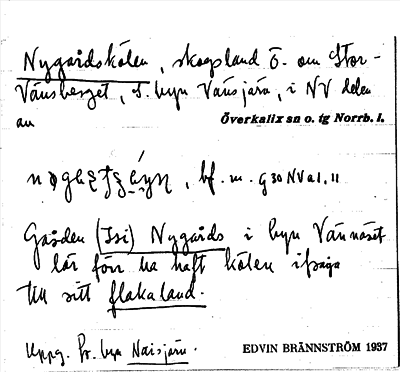 Nygårdskölen, skogsland ö. om Stor-
Vänsberget, S. byn Vänsjärv, i NV delen
av Överkalix sn o. tg Norrb. l.
, bf. m. G 30 NV a1, 11
Gården (Isi) Nygårds i byn Vännäset
lär förr ha haft kölen ifråga
till sitt flakaland.
Uppg. Pr. byn Näisjärv.
EDVIN BRÄNNSTRÖM 1937